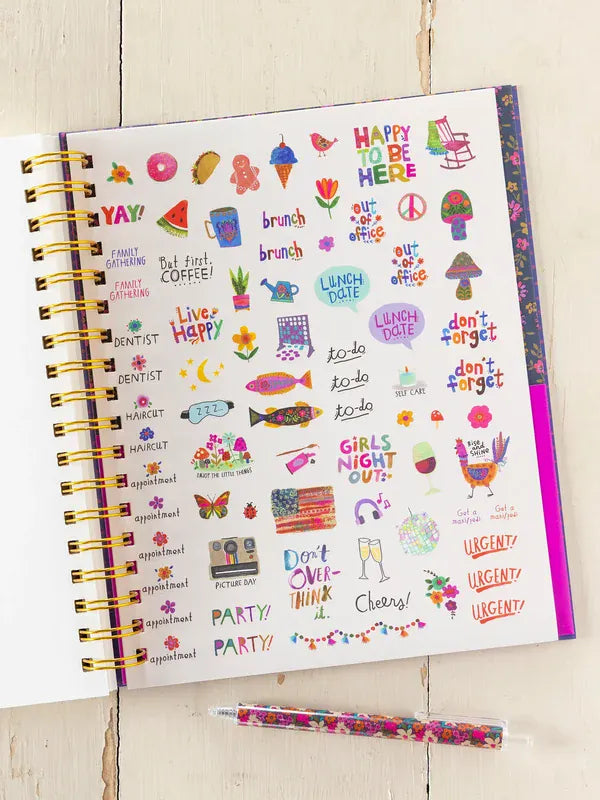 HAPPY
TO BE
HERE
YAY!
brunch
out
of
office
FAMILY
GATHERING
But first,
COFFEE!
brunch
out
of
office
FAMILY
GATHERING
LUNCH
DATE
Live
Happy
LUNCH
DATE
don't
forget
DENTIST
to-do
DENTIST
to-do
SELF CARE
don't
forget
HAIRCUT
ZZZ...
to-do
HAIRCUT
ENJOY THE LITTLE THINGS
GIRLS
NIGHT
OUT
RISE and
SHINE
appointment
Get a
mani/pedi
Get a
mani/pedi
appointment
URGENT!
appointment
PICTURE DAY
Don't
OVER-
THINK
it.
URGENT!
appointment
PARTY!
Cheers!
URGENT!
appointment
PARTY!